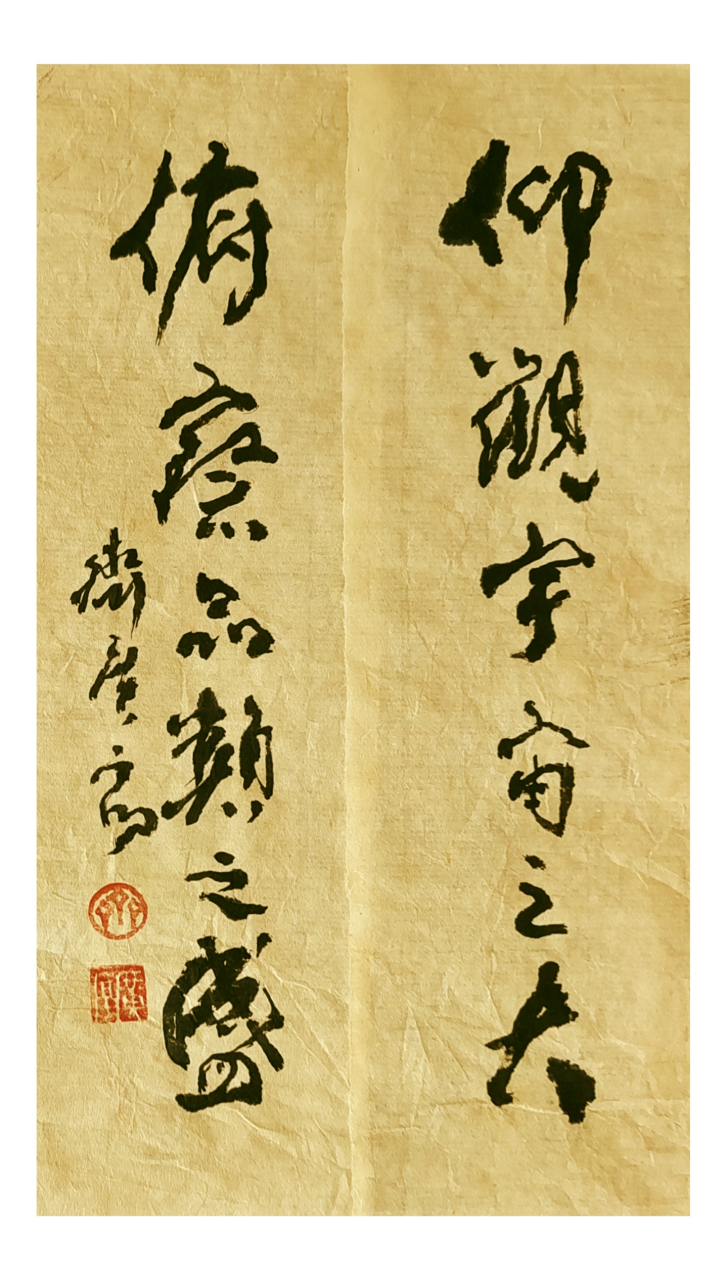 仰觀宇宙之大
俯察品類之盛